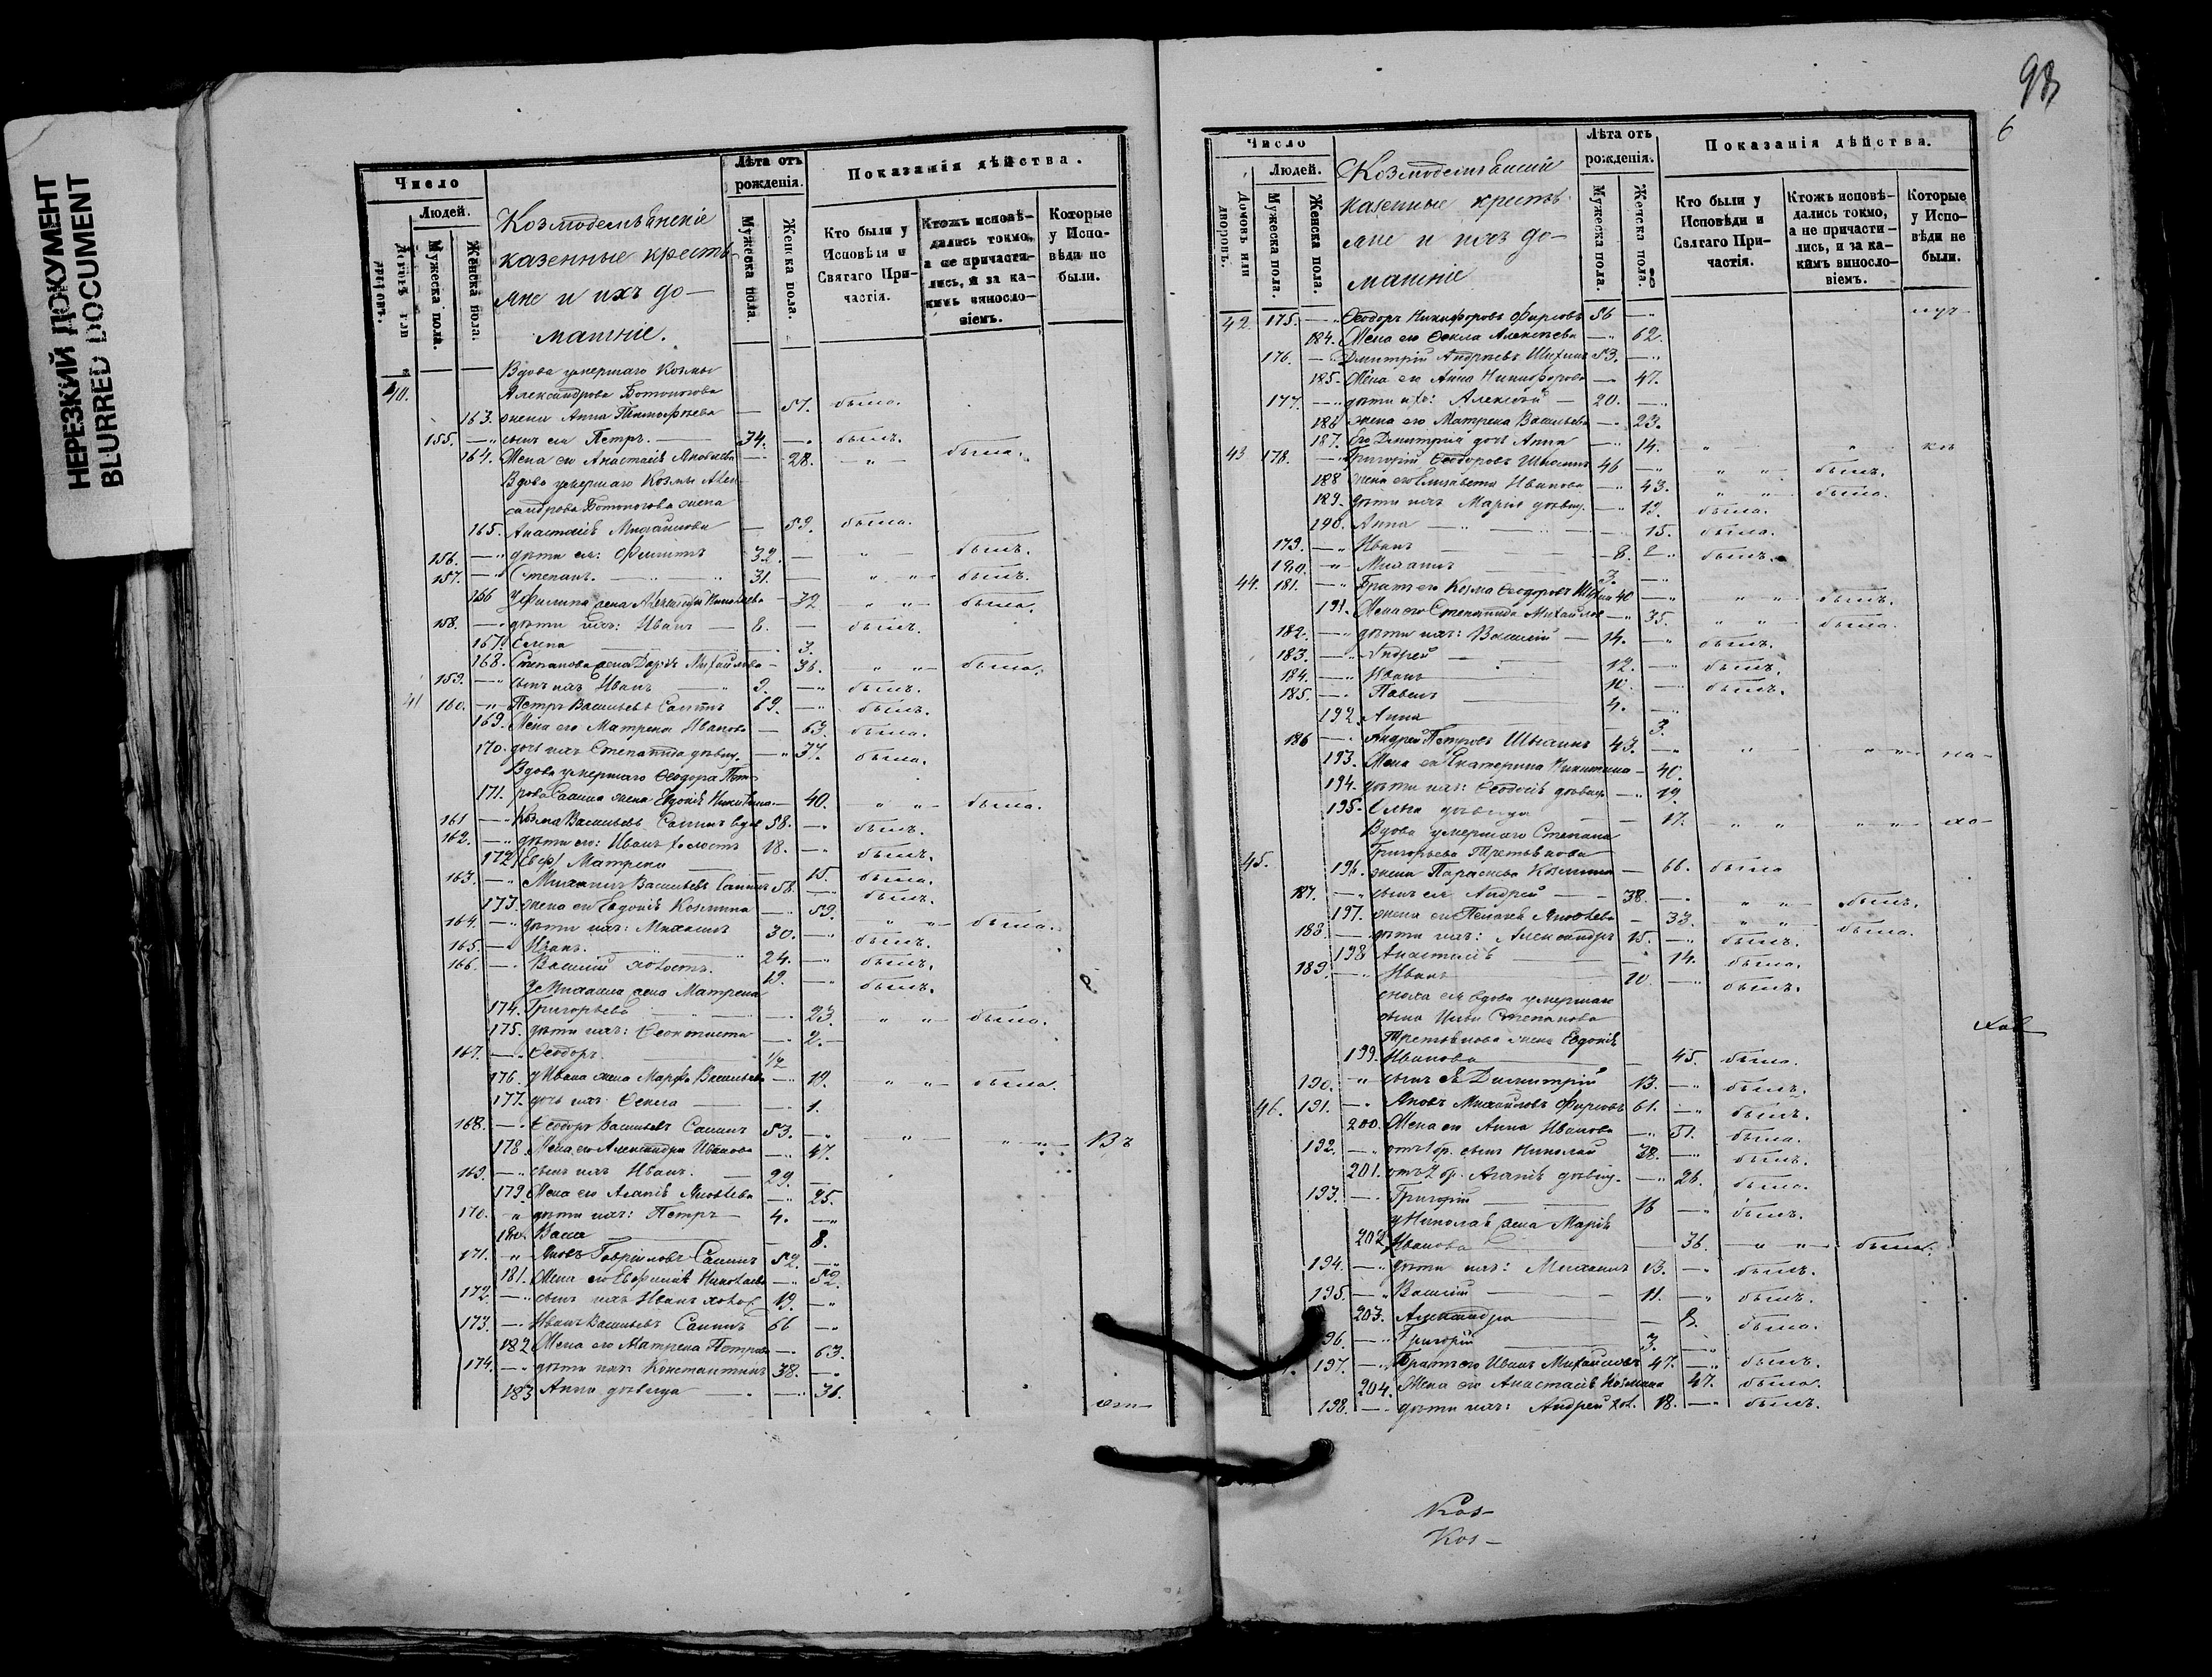 НЕРЕЗКИЙ ДОКУМЕНТ
BLURRED DOCUMENT
Число
Людей.
Мужеска пола.
Женска пола.
казенные кресть-
яне и ихъ до-
машніе.
Лѣта отъ рожденія.
Мужеска пола.
Женска пола.
Показанія дѣйства.
Кто были у Исповѣди и Святаго При-
частія.
Ктожъ исповѣ-
дались токмо, а не причасти-
лись, и за ка-
кимъ винносло-
віемъ.
Которые у Испо-
вѣди не были.
Вдова умершаго Козмы
40. Александрова
163. жена Анна — 57. была.
155. — сынъ ея Петръ. — 34. — былъ.
164. Жена его Анастасія — 28. — была.
Вдова умершаго Козмы Алек-
сандрова жена
165. Анастасія Михайлова — 59. была.
156. — дѣти ея: Филиппъ 32. — былъ.
157. — Степанъ. — 31. — былъ.
166 У Филиппа жена — 32 была.
158. — дѣти ихъ: Иванъ — 8. — былъ.
167. Елена — 3.
168. Степанова жена Дарія Михайлова — 36. была.
159. — сынъ ихъ Иванъ 9. — былъ.
41 160. — Петръ Васильевъ 69. — былъ.
169. Жена его Матрена Иванова — 63. была.
170. дочь ихъ Степанида дѣвиц. — 37. была.
Вдова умершаго Ѳеодора Пет-
171. рова жена Евдокія Никитина — 40. была.
161 — Козма Васильевъ вдов 58. — былъ.
162. — дѣти его: Иванъ холостъ 18. — былъ.
172 Матрена — 15. была.
163. — Михаилъ Васильевъ 58. — былъ.
173. жена его Евдокія Козмина — 59. была.
164. — дѣти ихъ: Михаилъ 30. — былъ.
165. — Иванъ. 24. — былъ.
166. — Василій холостъ. 19. — былъ.
У Михаила жена Матрена
174. Григорьева — 23. была.
175. дѣти ихъ: Ѳеоктиста — 2.
167. — Ѳеодоръ. 1/2
176. у Ивана жена Марѳа Васильева — 19. была.
177. дочь ихъ Ѳекла — 1.
168. — Ѳеодоръ Васильевъ 53. —
178 Жена его Александра Иванова — 47. Въ
169. — сынъ ихъ Иванъ. 29. —
179. Жена его Агапія Яковлева — 25.
170. дѣти ихъ: Петръ 4. —
180. Васса — 8.
171. Яковъ Гавриловъ 52. —
181. Жена его Евфимія Николаева — 52.
172. — сынъ ихъ Иванъ холос. 19. —
173. — Иванъ Васильевъ 66 —
182 Жена его Матрена Петрова — 63.
174. — дѣти ихъ: Константинъ 38. —
183 Анна дѣвица — 36.
6
Число
Людей.
Домовъ или дворовъ.
Мужеска пола.
Женска пола.
казенные кресть-
яне и ихъ до-
машніе
Лѣта отъ рожденія.
Мужеска пола.
Женска пола.
Показанія дѣйства.
Кто были у Исповѣди и Святаго При-
частія.
Ктожъ исповѣ-
дались токмо, а не причасти-
лись, и за ка-
кимъ винносло-
віемъ.
Которые у Испо-
вѣди не были.
42. 175. — Ѳеодоръ Никифоровъ Фирсовъ 56 —
184. Жена его Ѳекла Алексѣева — 62.
176. — Дмитрій Андреевъ 53. —
185. Жена его Анна Никифорова — 47.
177. — дѣти ихъ: Алексѣй — 20. —
186 жена его Матрена Васильева — 23.
187. Его Дмитрія дочь Анна — 14.
43 178. — Григорій Ѳеодоровъ 46 — былъ.
188 жена его Елисавета Иванова — 43. была.
189. дѣти ихъ Марія дѣвиц. — 19. была.
190. Анна — 15. была.
179. — Иванъ 8. былъ.
180. — Михаилъ 3. —
44. 181. — Братъ его Козма Ѳеодоровъ 40 — былъ.
191. Жена его Степанида Михайлов. — 35. была.
182. — дѣти ихъ: Василій — 14. — былъ.
183. — Андрей 12. — былъ.
184. — Иванъ 10. — былъ.
185. — Павелъ 4. —
192. Анна — 3.
186 — Андрей Петровъ 43. — на-
193. Жена его Екатерина Никитина — 40.
194. дѣти ихъ: Ѳеодосія дѣвиц. — 19.
195. дѣвица — 17. хо-
Вдова умершаго Степана
45. Григорьева Третьякова
196. жена Параскева Козмина — 66. была
187. — сынъ ея Андрей — 38. — былъ.
197. жена его Пелагія Яковлева — 33. была.
188 — дѣти ихъ: Александръ 15. — былъ.
198 Анастасія — 14. была.
189. — Иванъ 10. — былъ.
сноха ея вдова умершаго
сына Ильи Степанова
Третьякова жена Евдокія
199. Иванова — 45. была.
190. сынъ ея Димитрій 13. — былъ.
46. 191. — Яковъ Михайловъ Фирсовъ 61. — былъ.
200. Жена его Анна Иванова — 51. была.
192. — отъ 1 бр. сынъ Николай 38. — былъ.
201. отъ 2 бр. Агапія дѣвиц. — 26. была.
193. — Григорій 16 — былъ.
у Николая жена Марія
202 Иванова — 36. была.
194. — дѣти ихъ: Михаилъ 13. — былъ.
195. — Василій 11. — былъ.
203. Александра — 8. была.
196. — Григорій 3. —
197. — Братъ его Иванъ Михайловъ 47. — былъ.
204. Жена его Анастасія Козмина 47. была.
198. — дѣти ихъ: Андрей хол. 18. — былъ.